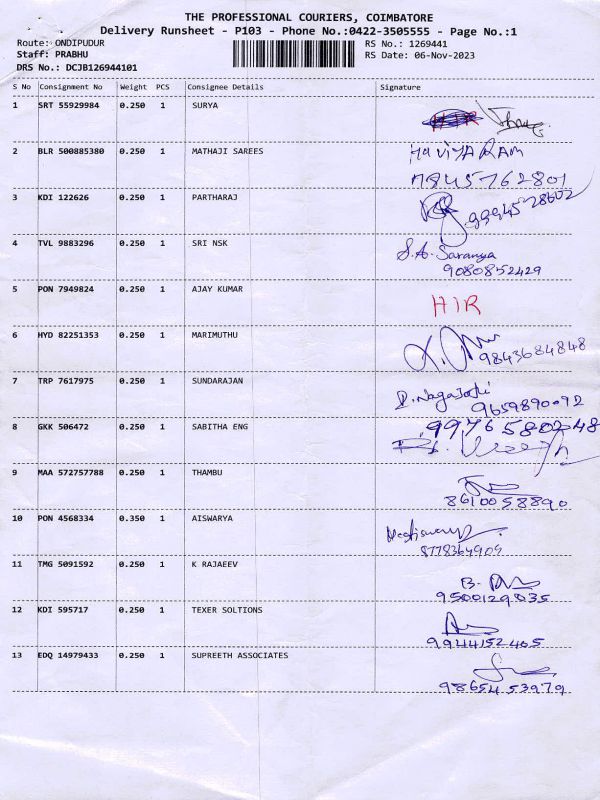 THE PROFESSIONAL COURIERS, COIMBATORE
Delivery Runsheet - P103 - Phone No.:0422-3505555 - Page No.:1
Route: ONDIPUDUR RS No.: 1269441
Staff: PRABHU RS Date: 06-Nov-2023
DRS No.: DCJB126944101
S No Consignment No Weight PCS Consignee Details Signature
1 SRT 55929984 0.250 1 SURYA
2 BLR 500885380 0.250 1 MATHAJI SAREES
7845762801
3 KDI 122626 0.250 1 PARTHARAJ
4 TVL 9883296 0.250 1 SRI NSK S.A. Saranya
9080852429
5 PON 7949824 0.250 1 AJAY KUMAR HIR
6 HYD 82251353 0.250 1 MARIMUTHU 9843684848
7 TRP 7617975 0.250 1 SUNDARAJAN
9659890092
8 GKK 506472 0.250 1 SABITHA ENG
9 MAA 572757788 0.250 1 THAMBU
8610058890
10 PON 4568334 0.350 1 AISWARYA
11 TMG 5091592 0.250 1 K RAJAEEV
12 KDI 595717 0.250 1 TEXER SOLTIONS
9944152465
13 EDQ 14979433 0.250 1 SUPREETH ASSOCIATES
9865453979